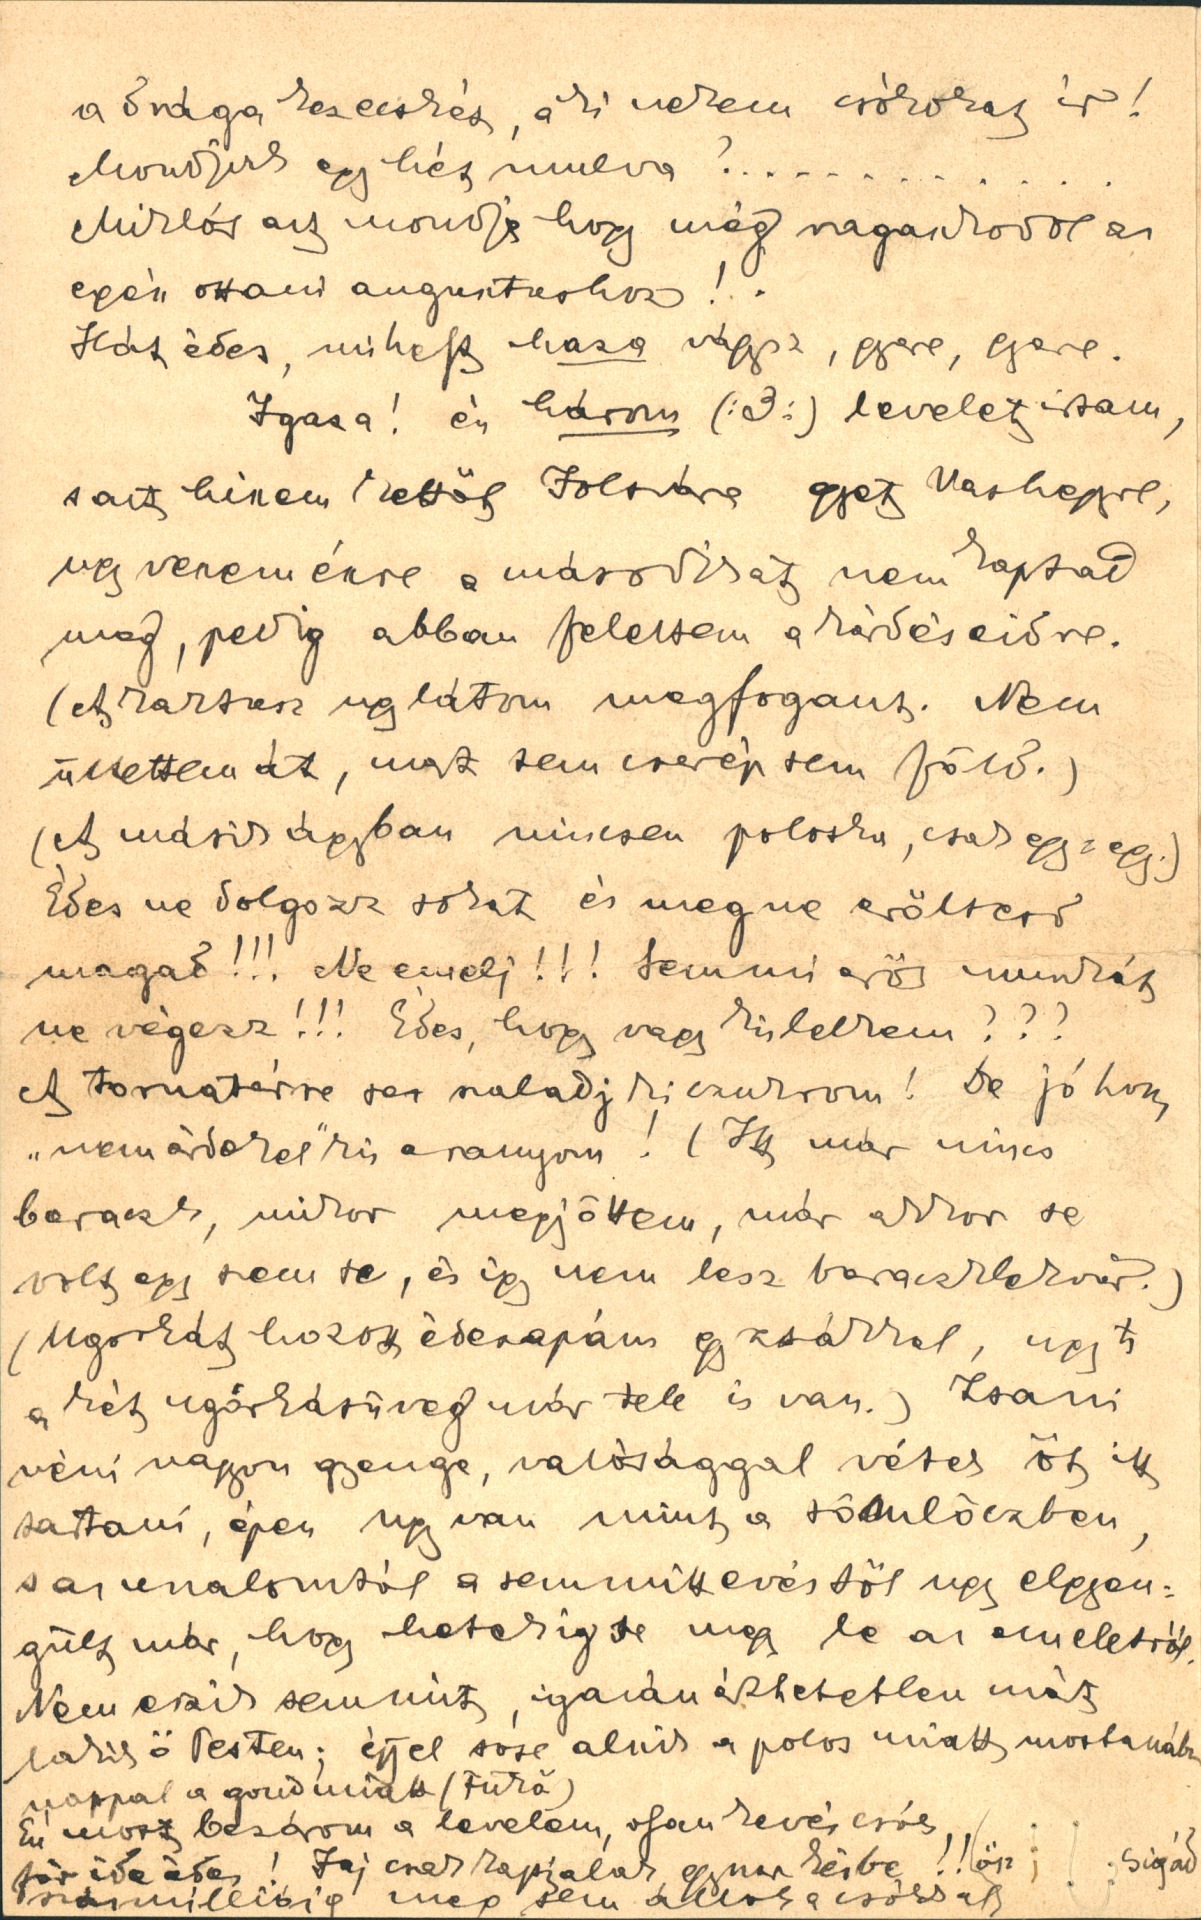 a drága kezecskét, a ki nekem csókokat ír!
Mondjuk egy hét mulva?.............
Miklós azt mondja hogy még ragaszkodol az
egész ottani augusztushoz!.
Hát édes, mihelyt haza vágysz, gyere, gyere.
Igaza! én három (:3:) levelet irtam,
s azt hiszem kettőt Jolsvára egyet Vashegyre,
ugy veszem észre a másodikat nem kaptad
meg, pedig abban feleltem a kérdéseidre.
(A kaktusz ugy látom megfogant. Nem
ültettem át, mert sem cserép sem föld.)
(A másik ágyban nincsen poloska, csak egy-egy.)
Édes ne dolgozz sokat és meg ne erőltesd
magad!!! Ne emelj!!! Semmi erős munkát
ne végezz!!! Édes, hogy vagy kis lelkem???
A tornatérre se szaladj ki czukrom! De jó hogy
"nem érdekel" kis aranyom! (Itt már nincs
baraczk, mikor megjöttem, már akkor se
volt egy szem se, és igy nem lesz baraczklekvár.)
(Ugorkát hozott édesapám egy zsákkal, ugyh
a két ugorkásüveg már tele is van.) Zsani
néni nagyon gyenge, valósággal vétek őt itt
tartani, épen ugy van mint a tömlöczben,
s az unalomtól a semmittevéstől ugy elgyen-
gült már, hogy hetekig se megy le az emeletről.
Nem eszik semmit, igazán érthetetlen mért
lakik ő Pesten; éjjel sose alszik a polos miatt mostanába
nappal a gond miatt (Fürő)
Én most bezárom a levelem, olyan kevés csók
fér ide édes! Jaj csak kapjalak egyszer kézbe!! (ősz sigád
számillióig meg sem állok a csókkal